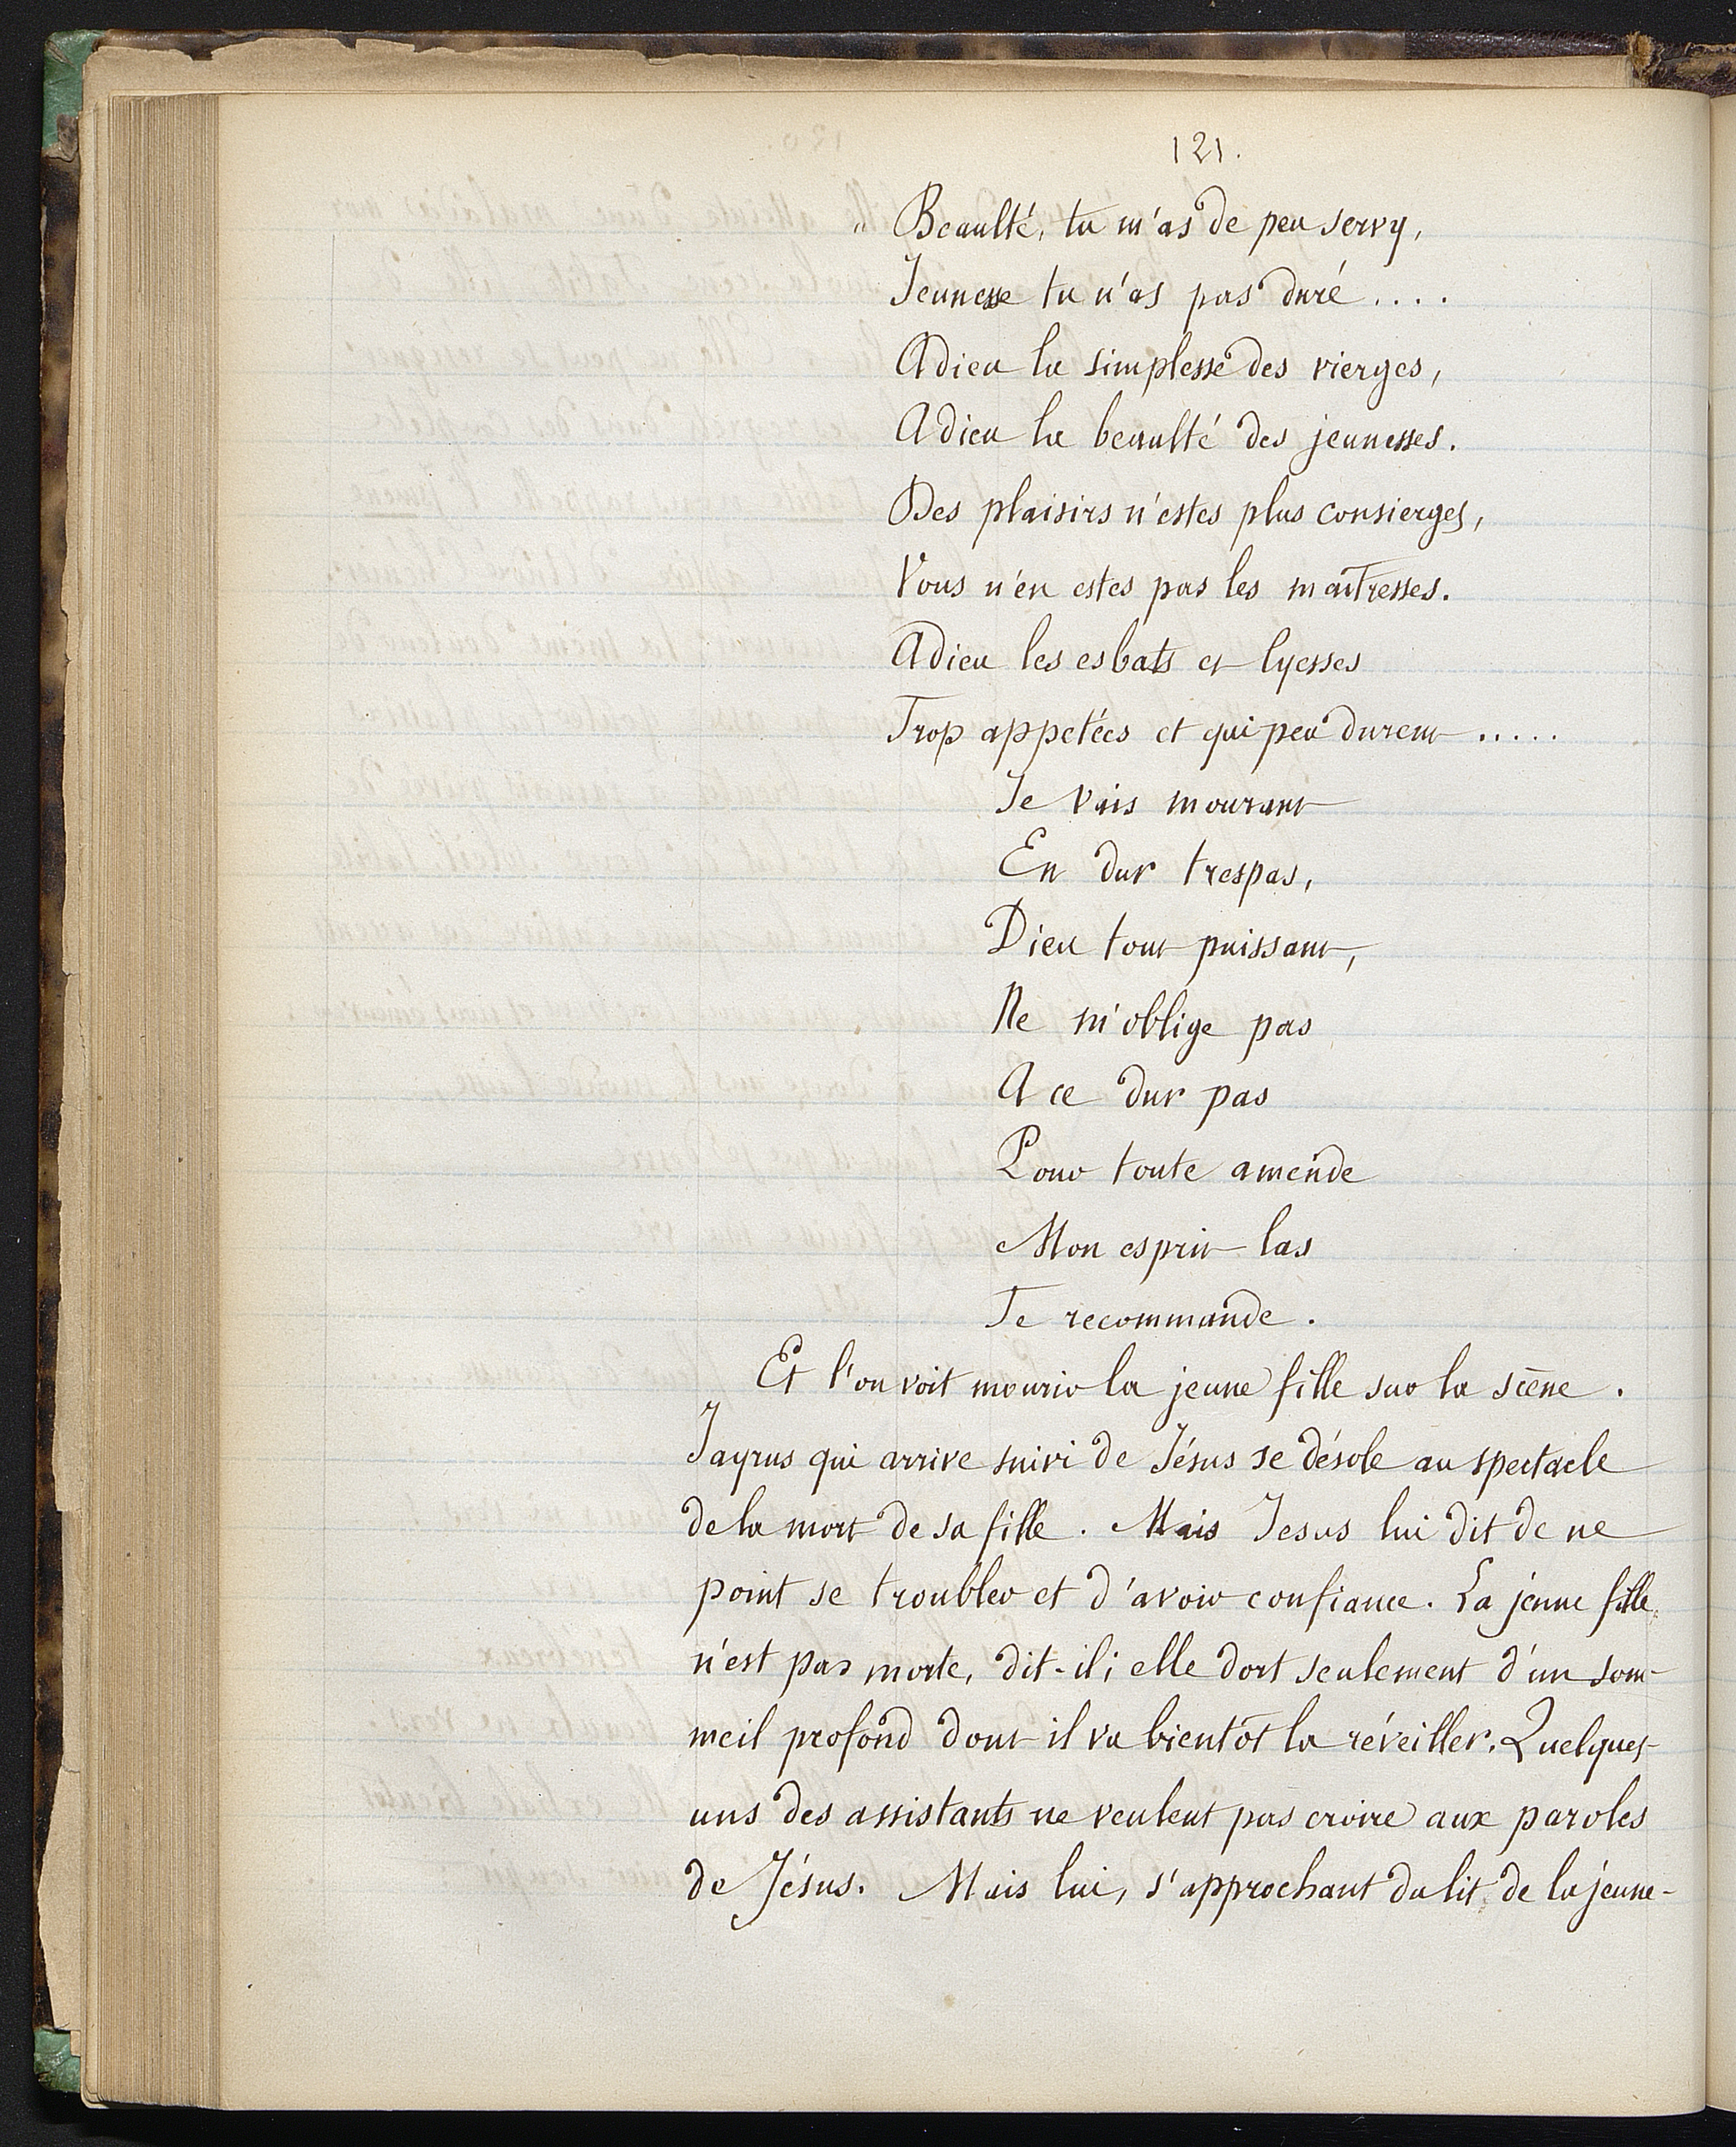 121.
" Beaulté, tu m'as de peu servy,
Jeunesse tu n'as pas duré ....
Adieu la simplesse des vierges,
Adieu la beaulté des jeunesses.
Des plaisirs n'estes plus consierges,
Vous n'en estes pas les maitresses.
Adieu les esbats et lyesses
Trop appetées et qui peu durent .....
Je vais mourant
En dur trespas,
Dieu tout puissant,
Ne m'oblige pas
A ce dur pas
Pour toute amende
Mon esprit las
Te recommande.
Et l'on voit mourir la jeune fille sur la scène.
Jayrus qui arrive suivi de Jésus se désole au spectacle
de la mort de sa fille. Mais Jesus lui dit de ne
point se troubler et d'avoir confiance. La jeune fille
n'est pas morte, dit-il; elle dort seulement d'un som-
meil profond dont il va bientôt la réveiller. Quelques-
uns des assistants ne veulent pas croire aux paroles
de Jésus. Mais lui, s'approchant du lit de la jeune-